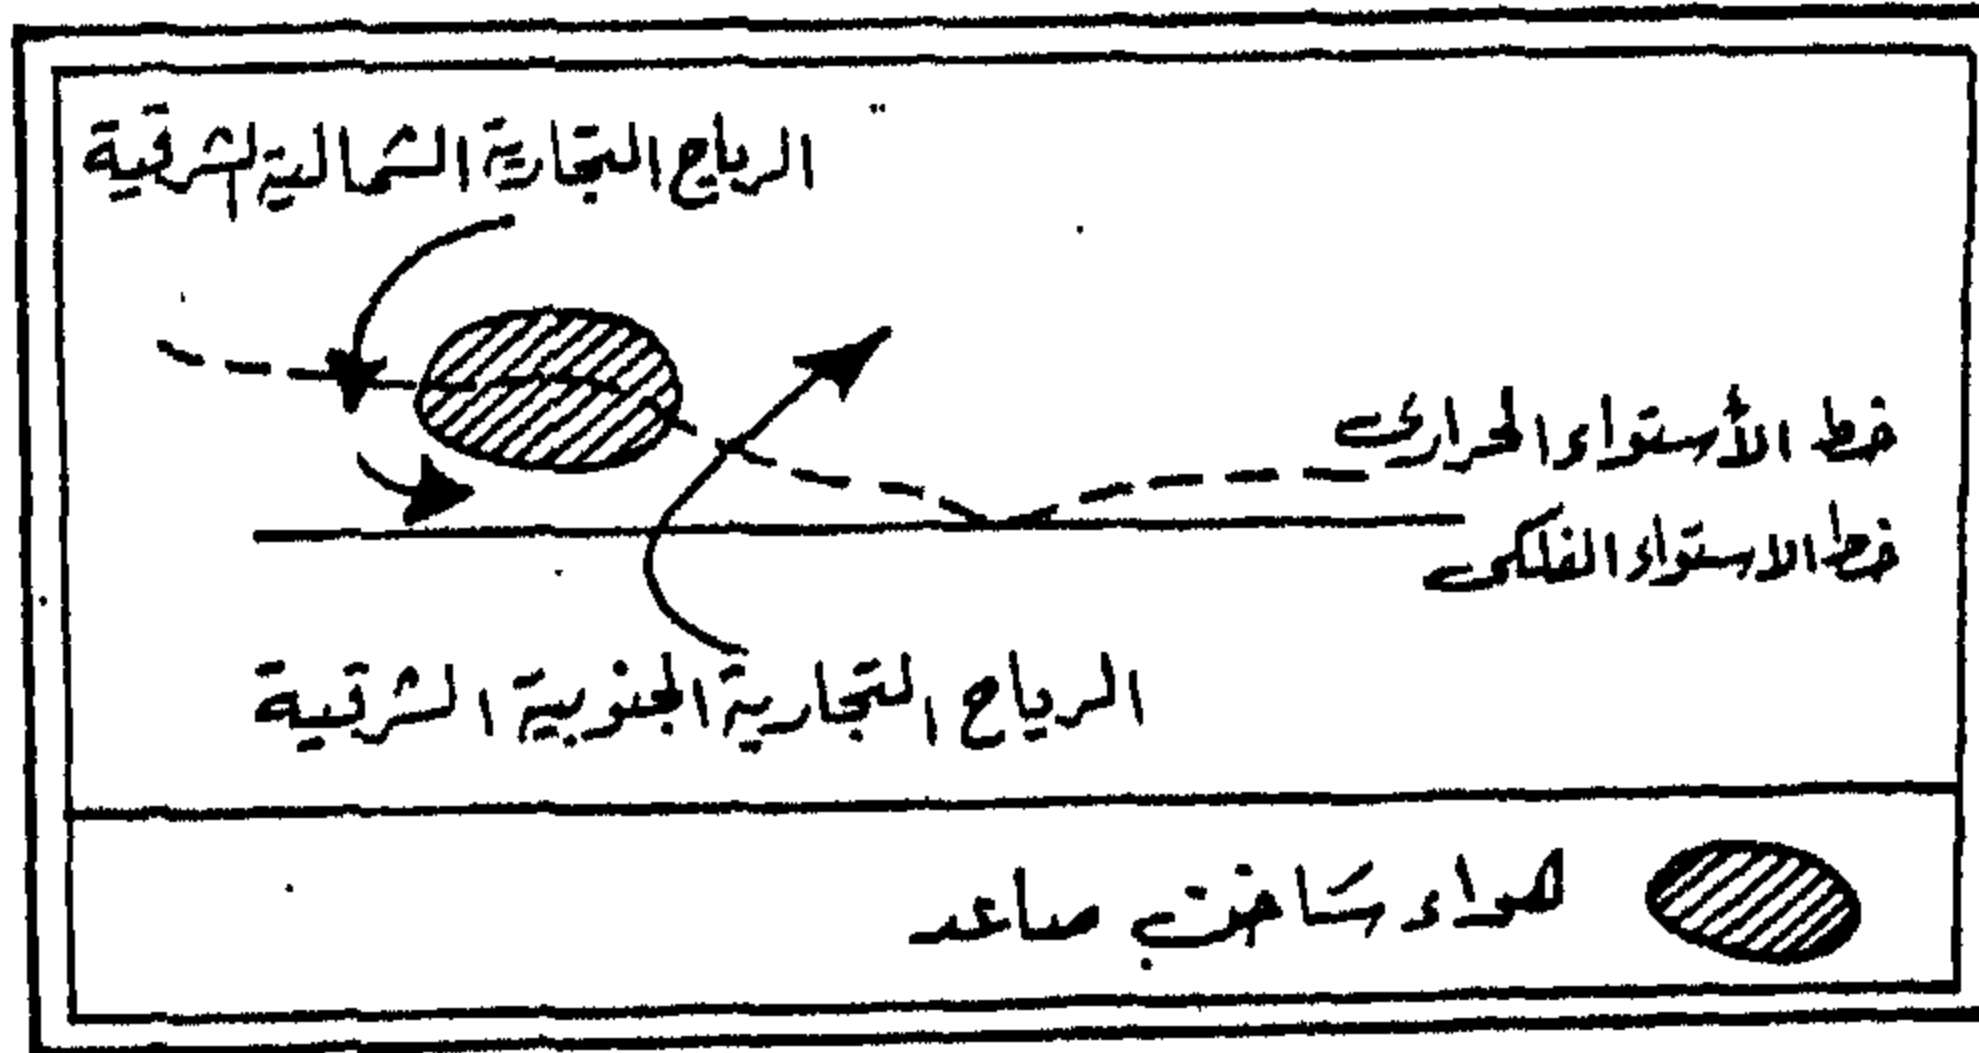 الرياح التجارية الشمالية الشرقية
خط الأستواء الحرارى
خط الاستواء الفلكى
الرياح التجارية الجنوبية الشرقية
هواء ساخن صاعد